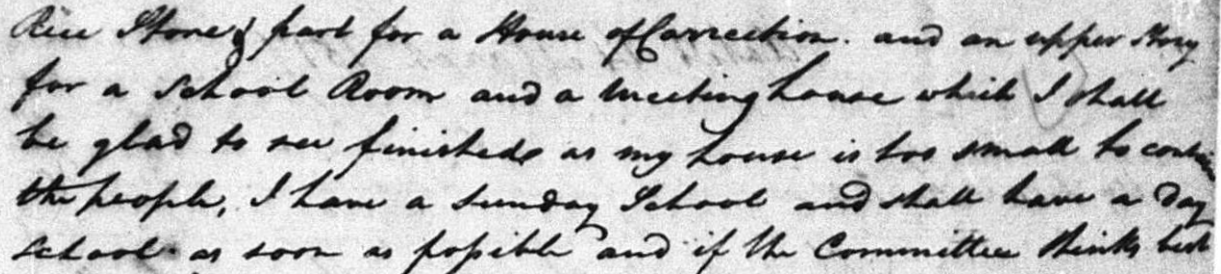 Rice Store & part for a House of Correction. and an upper Story
for a School Room and a meeting house which I shall
be glad to see finished as my house is too small to contain
the people, I have a Sunday School and shall have a day
School as soon as possible and if the Committee thinks best